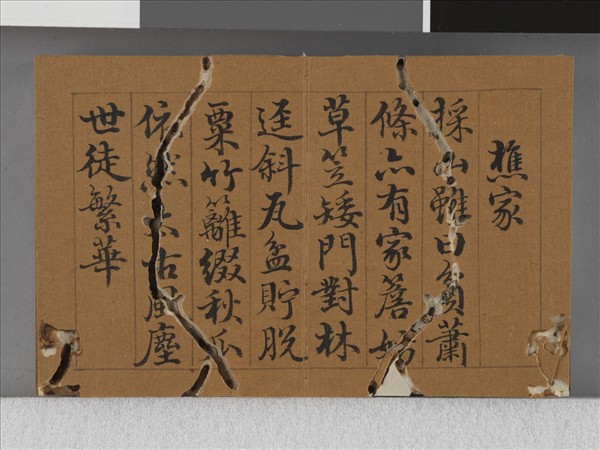 樵家
採山雖曰貧蕭
條亦有家簷
草笠矮門對林
逕斜瓦盆貯脫
粟竹籬綴秋瓜
依然太古風塵
世徒繁華